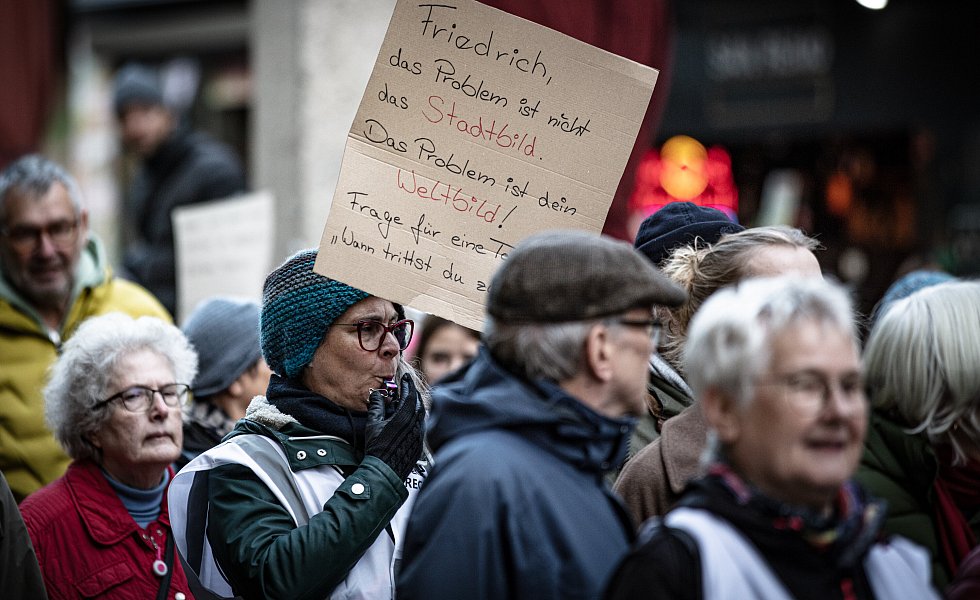 Friedrich,
das Problem ist nicht
das Stadtbild.
Das Problem ist dein
Weltbild!
Frage für eine
„Wann trittst du